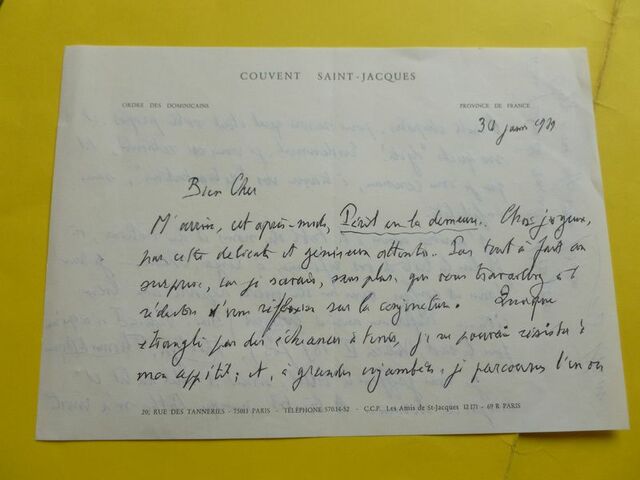 COUVENT SAINT-JACQUES
ORDRE DES DOMINICAINS
PROVINCE DE FRANCE
30
Bien Cher
M'arrive, cet après-midi, Péril en la demeure. Choc joyeux,
par cette délicate et généreuse attention. Pas tout à fait une
surprise, car je savais, sans plus, que vous travailliez à la
rédaction d'une réflexion sur la conjoncture. Quoique
étranglé par des échéances à terme, je ne pouvais résister à
mon appétit; et, à grandes enjambées, je parcourus l'un ou
20, RUE DES TANNERIES - 75013 PARIS - TÉLÉPHONE 570.14-52 - C.C.P. Les Amis de St-Jacques 12 171 - 69 R PARIS